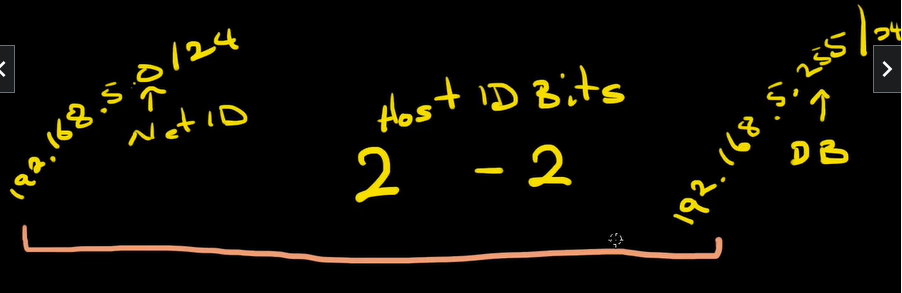 192.168.5.0/24
Net ID
Host ID Bits
2 - 2
192.168.5.255/24
DB